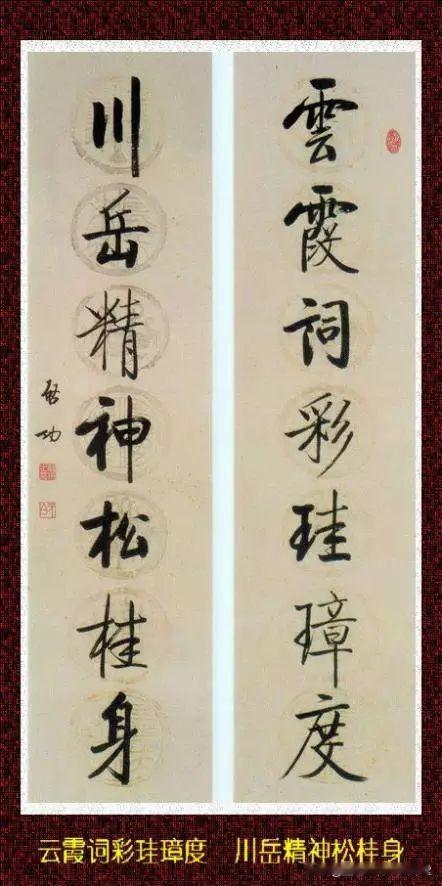 雲霞詞彩珪璋度
川岳精神松桂身
啟功
云霞词彩珪璋度 川岳精神松桂身